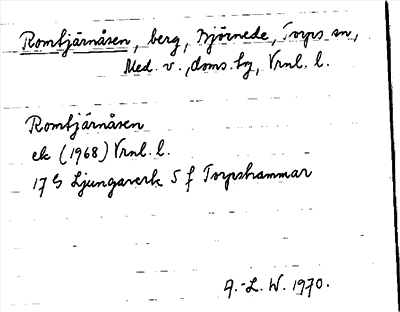 Romtjärnåsen, berg, Björnede, Torps sn,
Med. v., doms. by, Vrnl. l.
Romtjärnåsen
ek (1968) Vrnl. l.
17 G Ljungaverk 5 f Torpshammar
A.-L. W. 1970.